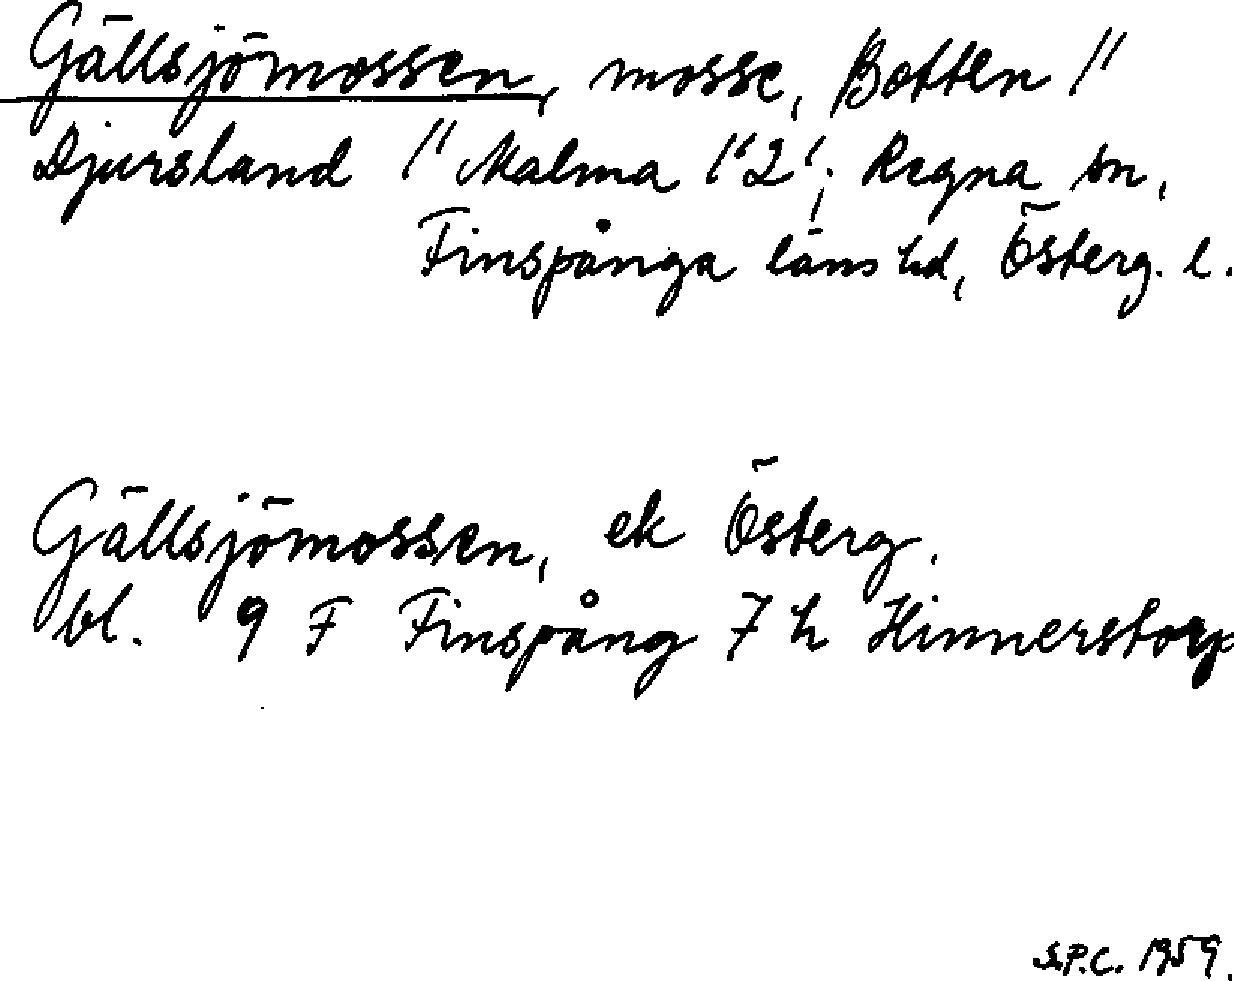 Gällsjömossen, mosse, Botten 1"
Djursland 1" Malma 1"2"; Regna sn,
Finspånga läns hd, Österg. l.
Gällsjömossen, ek Österg.
bl. 9 F Finspång 7 h Hinnerstorp
S.P.C. 1959.